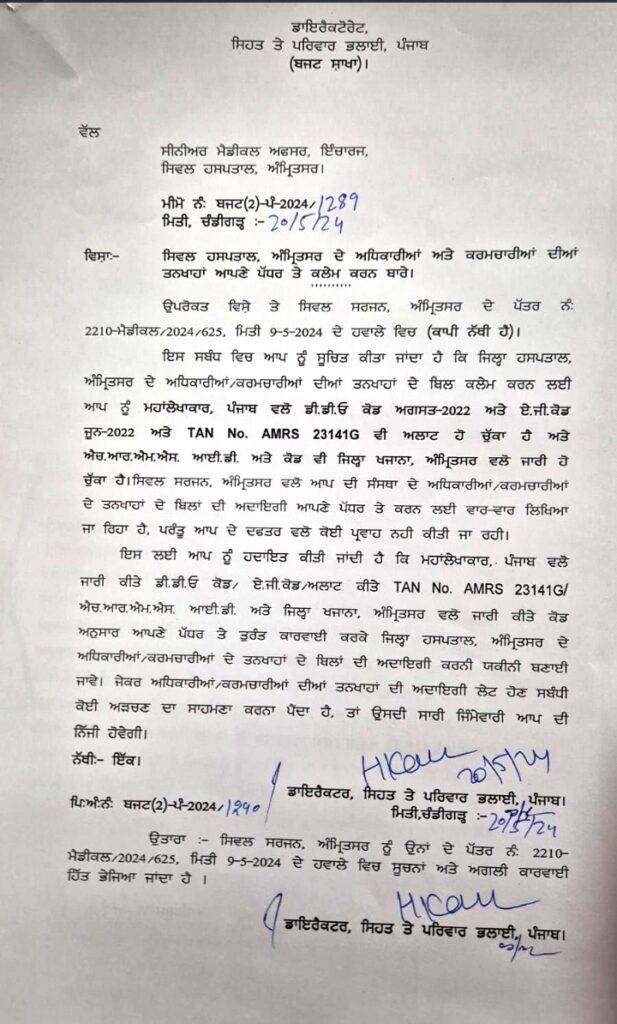 ਡਾਇਰੈਕਟੋਰੇਟ,
ਸਿਹਤ ਤੇ ਪਰਿਵਾਰ ਭਲਾਈ, ਪੰਜਾਬ
(ਬਜਟ ਸ਼ਾਖਾ)।
ਵੱਲ
ਸੀਨੀਅਰ ਮੈਡੀਕਲ ਅਫਸਰ, ਇੰਚਾਰਜ,
ਸਿਵਲ ਹਸਪਤਾਲ, ਅੰਮ੍ਰਿਤਸਰ।
ਮੀਮੋ ਨੰ: ਬਜਟ(2)-ਪੰ-2024/1289
ਮਿਤੀ, ਚੰਡੀਗੜ੍ਹ :- 20/5/24
ਵਿਸ਼ਾ:- ਸਿਵਲ ਹਸਪਤਾਲ, ਅੰਮ੍ਰਿਤਸਰ ਦੇ ਅਧਿਕਾਰੀਆਂ ਅਤੇ ਕਰਮਚਾਰੀਆਂ ਦੀਆਂ
ਤਨਖਾਹਾਂ ਆਪਣੇ ਪੱਧਰ ਤੇ ਕਲੇਮ ਕਰਨ ਬਾਰੇ।
ਉਪਰੋਕਤ ਵਿਸ਼ੇ ਤੇ ਸਿਵਲ ਸਰਜਨ, ਅੰਮ੍ਰਿਤਸਰ ਦੇ ਪੱਤਰ ਨੰ:
2210-ਮੈਡੀਕਲ/2024/625, ਮਿਤੀ 9-5-2024 ਦੇ ਹਵਾਲੇ ਵਿਚ (ਕਾਪੀ ਨੱਥੀ ਹੈ)।
ਇਸ ਸਬੰਧ ਵਿਚ ਆਪ ਨੂੰ ਸੂਚਿਤ ਕੀਤਾ ਜਾਂਦਾ ਹੈ ਕਿ ਜਿਲ੍ਹਾ ਹਸਪਤਾਲ,
ਅੰਮ੍ਰਿਤਸਰ ਦੇ ਅਧਿਕਾਰੀਆਂ/ਕਰਮਚਾਰੀਆਂ ਦੀਆਂ ਤਨਖਾਹਾਂ ਦੇ ਬਿਲ ਕਲੇਮ ਕਰਨ ਲਈ
ਆਪ ਨੂੰ ਮਹਾਂਲੇਖਾਕਾਰ, ਪੰਜਾਬ ਵਲੋ ਡੀ.ਡੀ.ਓ ਕੋਡ ਅਗਸਤ-2022 ਅਤੇ ਏ.ਜੀ.ਕੋਡ
ਜੂਨ-2022 ਅਤੇ TAN No. AMRS 23141G ਵੀ ਅਲਾਟ ਹੋ ਚੁੱਕਾ ਹੈ ਅਤੇ
ਐਚ.ਆਰ.ਐਮ.ਐਸ. ਆਈ.ਡੀ. ਅਤੇ ਕੋਡ ਵੀ ਜਿਲ੍ਹਾ ਖਜਾਨਾ, ਅੰਮ੍ਰਿਤਸਰ ਵਲੋ ਜਾਰੀ ਹੋ
ਚੁੱਕਾ ਹੈ।ਸਿਵਲ ਸਰਜਨ, ਅੰਮ੍ਰਿਤਸਰ ਵਲੋ ਆਪ ਦੀ ਸੰਸਥਾ ਦੇ ਅਧਿਕਾਰੀਆਂ/ਕਰਮਚਾਰੀਆਂ
ਦੇ ਤਨਖਾਹਾਂ ਦੇ ਬਿਲਾਂ ਦੀ ਅਦਾਇਗੀ ਆਪਣੇ ਪੱਧਰ ਤੇ ਕਰਨ ਲਈ ਵਾਰ-ਵਾਰ ਲਿਖਿਆ
ਜਾ ਰਿਹਾ ਹੈ, ਪਰੰਤੂ ਆਪ ਦੇ ਦਫਤਰ ਵਲੋ ਕੋਈ ਪ੍ਰਵਾਹ ਨਹੀ ਕੀਤੀ ਜਾ ਰਹੀ।
ਇਸ ਲਈ ਆਪ ਨੂੰ ਹਦਾਇਤ ਕੀਤੀ ਜਾਂਦੀ ਹੈ ਕਿ ਮਹਾਂਲੇਖਾਕਾਰ, ਪੰਜਾਬ ਵਲੋ
ਜਾਰੀ ਕੀਤੇ ਡੀ.ਡੀ.ਓ ਕੋਡ/ ਏ.ਜੀ.ਕੋਡ/ਅਲਾਟ ਕੀਤੇ TAN No. AMRS 23141G/
ਐਚ.ਆਰ.ਐਮ.ਐਸ. ਆਈ.ਡੀ. ਅਤੇ ਜਿਲ੍ਹਾ ਖਜਾਨਾ, ਅੰਮ੍ਰਿਤਸਰ ਵਲੋ ਜਾਰੀ ਕੀਤੇ ਕੋਡ
ਅਨੁਸਾਰ ਆਪਣੇ ਪੱਧਰ ਤੇ ਤੁਰੰਤ ਕਾਰਵਾਈ ਕਰਕੇ ਜਿਲ੍ਹਾ ਹਸਪਤਾਲ, ਅੰਮ੍ਰਿਤਸਰ ਦੇ
ਅਧਿਕਾਰੀਆਂ/ਕਰਮਚਾਰੀਆਂ ਦੇ ਤਨਖਾਹਾਂ ਦੇ ਬਿਲਾਂ ਦੀ ਅਦਾਇਗੀ ਕਰਨੀ ਯਕੀਨੀ ਬਣਾਈ
ਜਾਵੇ। ਜੇਕਰ ਅਧਿਕਾਰੀਆਂ/ਕਰਮਚਾਰੀਆਂ ਦੀਆਂ ਤਨਖਾਹਾਂ ਦੀ ਅਦਾਇਗੀ ਲੇਟ ਹੋਣ ਸਬੰਧੀ
ਕੋਈ ਅੜਚਣ ਦਾ ਸਾਹਮਣਾ ਕਰਨਾ ਪੈਂਦਾ ਹੈ, ਤਾਂ ਉਸਦੀ ਸਾਰੀ ਜਿੰਮੇਵਾਰੀ ਆਪ ਦੀ
ਨਿੱਜੀ ਹੋਵੇਗੀ।
ਨੱਥੀ:- ਇੱਕ।
HKaur 20/5/24
ਡਾਇਰੈਕਟਰ, ਸਿਹਤ ਤੇ ਪਰਿਵਾਰ ਭਲਾਈ, ਪੰਜਾਬ।
ਪਿ:ਅੰ:ਨੰ: ਬਜਟ(2)-ਪੰ-2024/1290 ਮਿਤੀ,ਚੰਡੀਗੜ੍ਹ :- 20/5/24
ਉਤਾਰਾ :- ਸਿਵਲ ਸਰਜਨ, ਅੰਮ੍ਰਿਤਸਰ ਨੂੰ ਉਨਾਂ ਦੇ ਪੱਤਰ ਨੰ: 2210-
ਮੈਡੀਕਲ/2024/625, ਮਿਤੀ 9-5-2024 ਦੇ ਹਵਾਲੇ ਵਿਚ ਸੂਚਨਾਂ ਅਤੇ ਅਗਲੀ ਕਾਰਵਾਈ
ਹਿੱਤ ਭੇਜਿਆ ਜਾਂਦਾ ਹੈ ।
HKaur
ਡਾਇਰੈਕਟਰ, ਸਿਹਤ ਤੇ ਪਰਿਵਾਰ ਭਲਾਈ, ਪੰਜਾਬ।